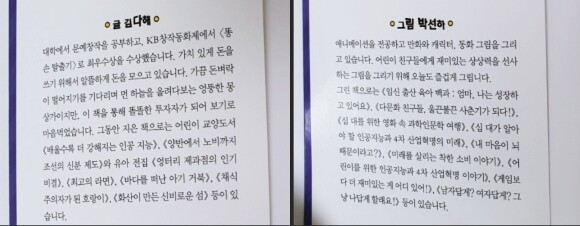 글 김다해
대학에서 문예창작을 공부하고, KB창작동화제에서 〈똥
손 탈출기〉로 최우수상을 수상했습니다. 가치 있게 돈을
쓰기 위해서 알뜰하게 돈을 모으고 있습니다. 가끔 돈벼락
이 떨어지기를 기다리며 먼 하늘을 올려다보는 엉뚱한 몽
상가이지만, 이 책을 통해 똘똘한 투자자가 되어 보기로
마음먹었습니다. 그동안 지은 책으로는 어린이 교양도서
《배울수록 더 강해지는 인공 지능》, 《양반에서 노비까지
조선의 신분 제도》와 유아 전집 《엉터리 제과점의 인기
비결》, 《최고의 라면》, 《바다를 떠난 아기 거북》, 《채식
주의자가 된 호랑이》, 《화산이 만든 신비로운 섬》 등이 있
습니다.
그림 박선하
애니메이션을 전공하고 만화와 캐릭터, 동화 그림을 그리
고 있습니다. 어린이 친구들에게 재미있는 상상력을 선사
하는 그림을 그리기 위해 오늘도 즐겁게 그립니다.
그린 책으로는 《임신 출산 육아 백과 : 엄마, 나는 성장하
고 있어요》, 《다문화 친구들, 울끈불끈 사춘기가 되다!》,
《십 대를 위한 영화 속 과학인문학 여행》, 《십 대가 알아
야 할 인공지능과 4차 산업혁명의 미래》, 《내 마음이 뇌
때문이라고?》, 《미래를 살리는 착한 소비 이야기》, 《어
린이를 위한 인공지능과 4차 산업혁명 이야기》, 《게임보
다 더 재미있는 게 어디 있어!》, 《남자답게? 여자답게? 그
냥 나답게 할래요!》 등이 있습니다.